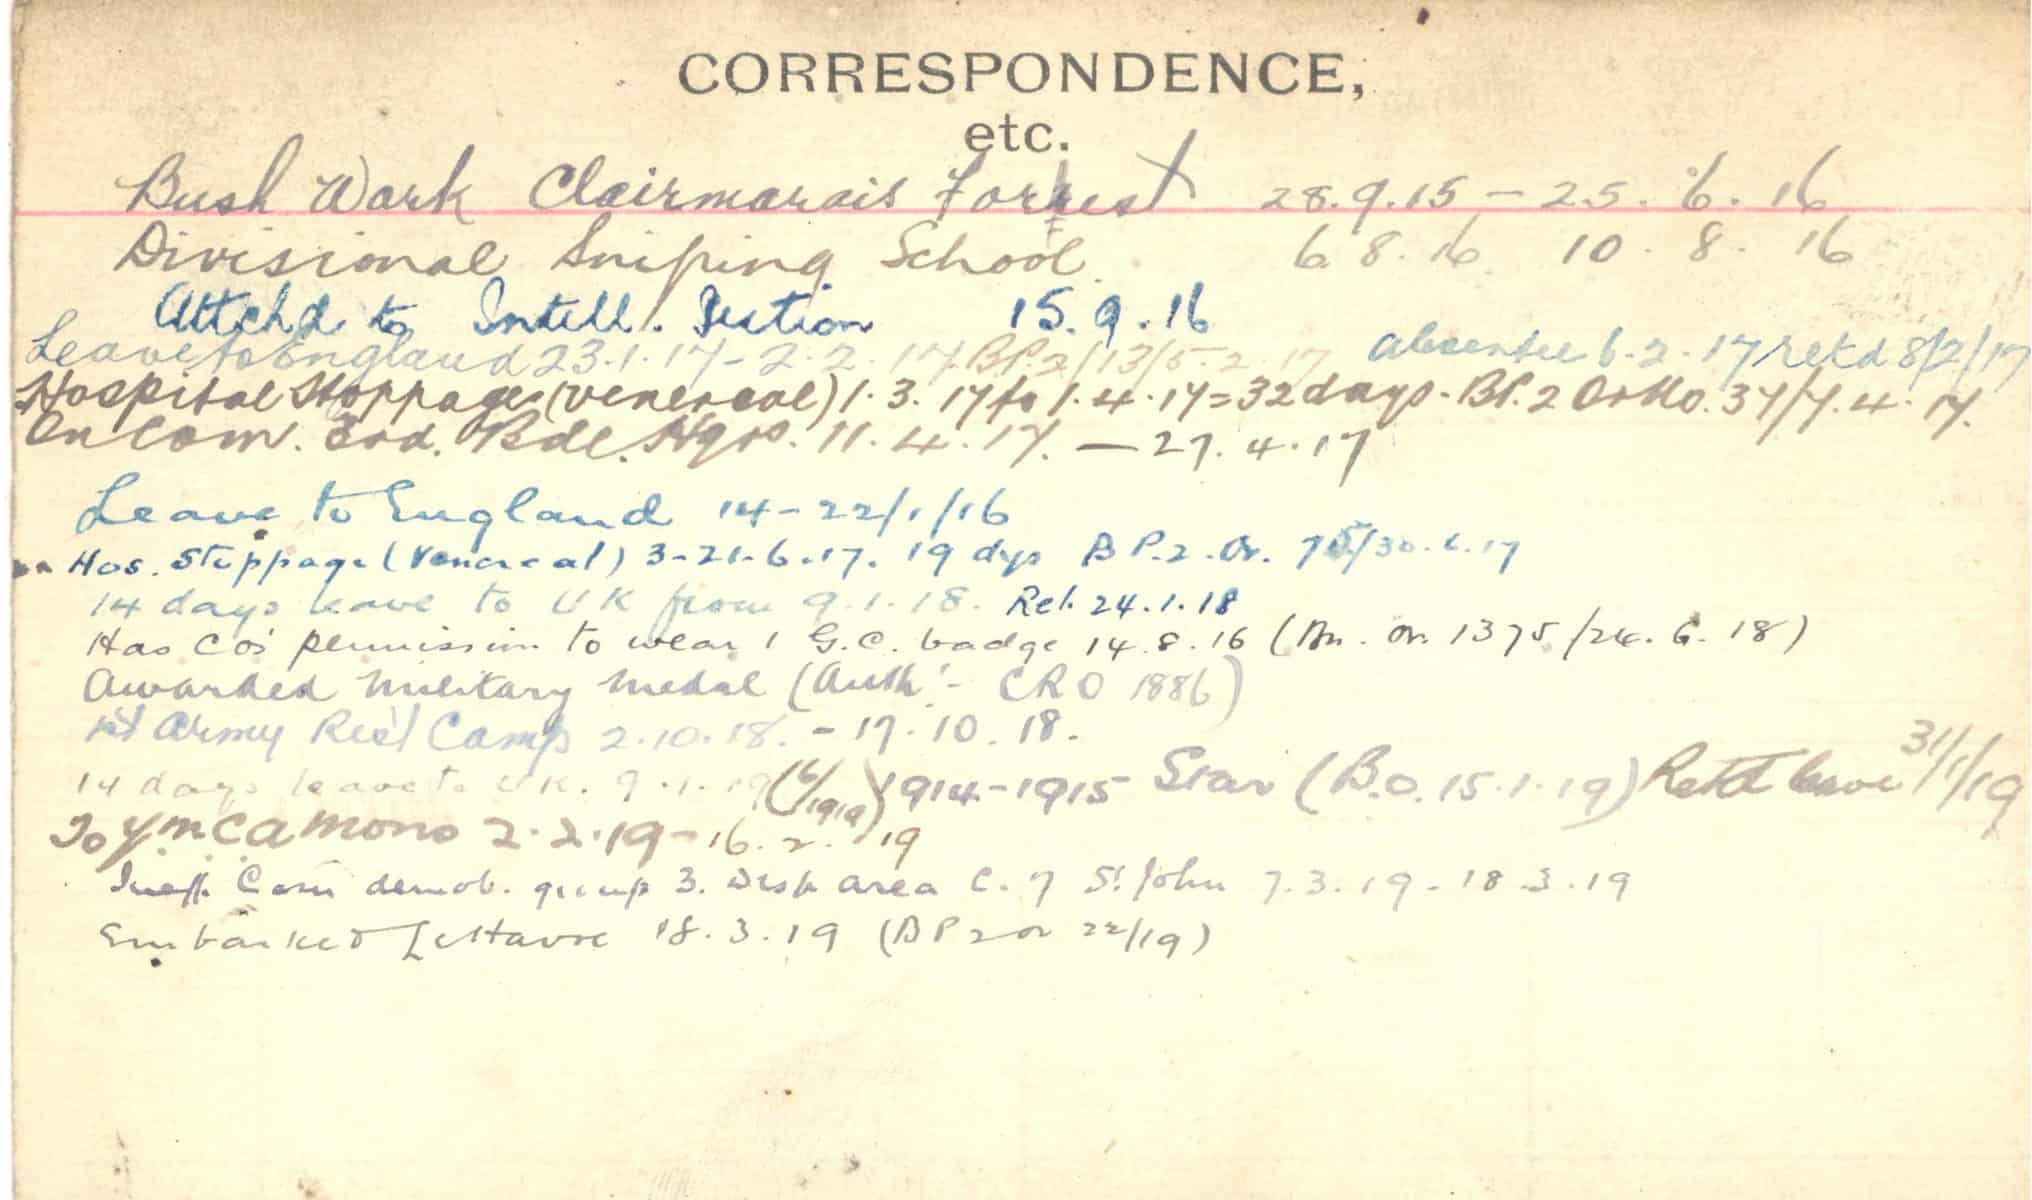 CORRESPONDENCE,
etc.
Bush Work Clairmarais Forrest 28.9.15 - 25.6.16
Divisional Sniping School 6.8.16 10.8.16
Attchd to Intell. Section 15.9.16
Leave to England 23.1.17-2.2.17. BP.2/13/5.2.17 absentee 6.2.17 retd 8/2/17
Hospital Stoppages (venereal) 1.3.17 to 1.4.17=32 days. BP.2 Or No. 37/7.4.17.
On Com. 3rd. Bde. Hqrs. 11.4.17. — 27.4.17
Leave to England 14-22/1/16
Hos. Stoppage (Venereal) 3-21.6.17. 19 dys BP.2.Or. 75/30.6.17
14 days leave to UK from 9.1.18. Ret. 24.1.18
Has Co's permission to wear 1 G.C. badge 14.8.16 (Bn. Or. 1375/24.6.18)
Awarded Military Medal (Auth:- CRO 1886)
1st Army Rest Camp 2.10.18. - 17.10.18.
14 days leave to UK. 9.1.19 (6/1919) 1914-1915 Star (B.O.15.1.19) Retd leave 31/1/19
To YMCA Mons 2.2.19-16.2.19
Ineff. Cam demob. group 3. Disp area C. 7 St John 7.3.19-18.3.19
Embarked Le Havre 18.3.19 (BP 2 or 22/19)